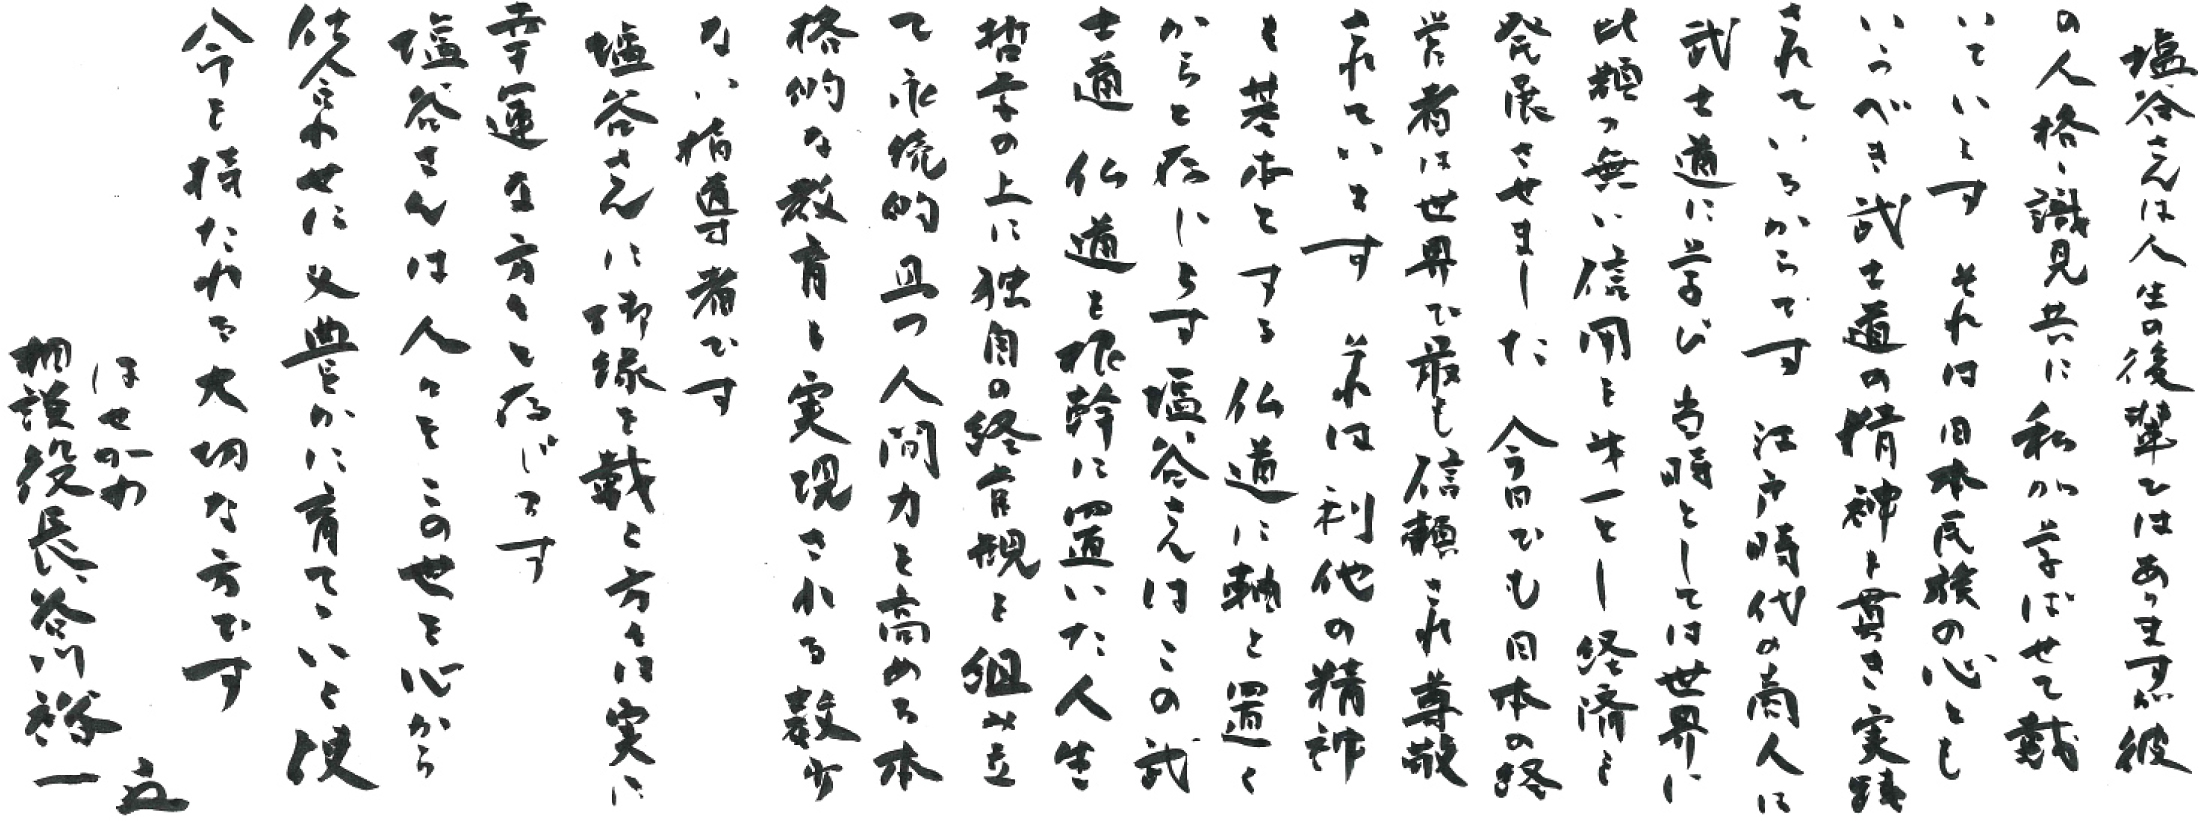 塩谷さんは人生の後輩ではありますが彼
の人格、識見共に私が学ばせて戴
いています それは日本民族の心とも
いうべき武士道の精神を貫き実践
されているからです 江戸時代の商人は
武士道に学び 当時としては世界に
比類の無い信用を第一とし 経済を
発展させました 今日でも日本の経
営者は世界で最も信頼され尊敬
されています それは利他の精神
を基本とする仏道に軸を置く
からと存じます 塩谷さんはこの武
士道 仏道を根幹に置いた人生
哲学の上に独自の経営観を組み立
て永続的且つ人間力を高める本
格的な教育を実現される数少
ない指導者です
塩谷さんに御縁を戴く方々は実に
幸運な方々と存じます
塩谷さんは人々をこの世を心から
仕合わせに 又 豊かに育てていく使
命を持たれる大切な方です
ほせがわ
相談役 長谷川裕一